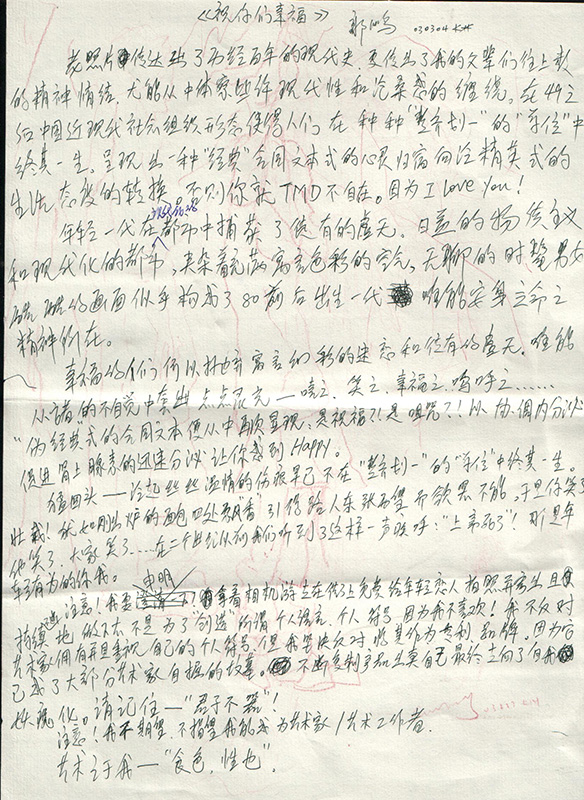 《祝你们幸福》 郭鸣 030304
老照片传达出了历经百年的现代史,更传出了我的父辈们往上数
的精神情结,尤能从中体察些许现代性和沧桑感的缠绕。在
中国近现代社会组织形态使得人们在种种“整齐划一”的“单位”中
终其一生。呈现出一种“经典”合同文本式的心灵归宿向冷精英式的
生活态度的转换,否则你就TMD不自在。因为I love you!
年轻一代在都市中捕获了仅有的虚无。日益的物质主义
和现代化的都市,夹杂着充满寓言色彩的空气,无聊的时髦男女
的画面似乎构成了80前后出生一代唯能安身立命之
精神所在。
幸福的人们何以抛弃寓言幻彩的迷恋和仅有的虚无,唯能
从诸的不自觉中套出点点灵光——嘻之、笑之、幸福之、呜呼之……
“伪经典”式的合同文本便从中再次显现,是祝福?!是咀咒?!以协调内分泌
促进肾上腺素的迅速分泌 让你感到Happy。
猛回头——冷起丝丝温情的伤痕早已不在“整齐划一”的“单位”中终其一生。
壮哉!犹如刚出炉的面包四处飘香,引得路人东张西望而欲罢不能,于是你笑了
他笑了,大家笑了……在二个世纪以前我们听到了这样一声欢呼:“上帝死了”!那是年
轻有为的你我。
注意!我要申明!拿着相机游走在街上免费给年轻恋人拍照并寄出且
持续地做下去不是为了创造所谓个人语言,个人符号,因为我不喜欢!我不反对
艺术家拥有并且喜欢自己的个人符号,但我坚决反对将其作为专利、品牌。因为它
已成了大部分艺术家自掘的坟墓。不断复制产品出卖自己最终走向了自我
妖魔化。请记住——“君子不器”!
注意!我不期望,不指望我能成为艺术家/艺术工作者。
艺术之于我——“食色,性也”。